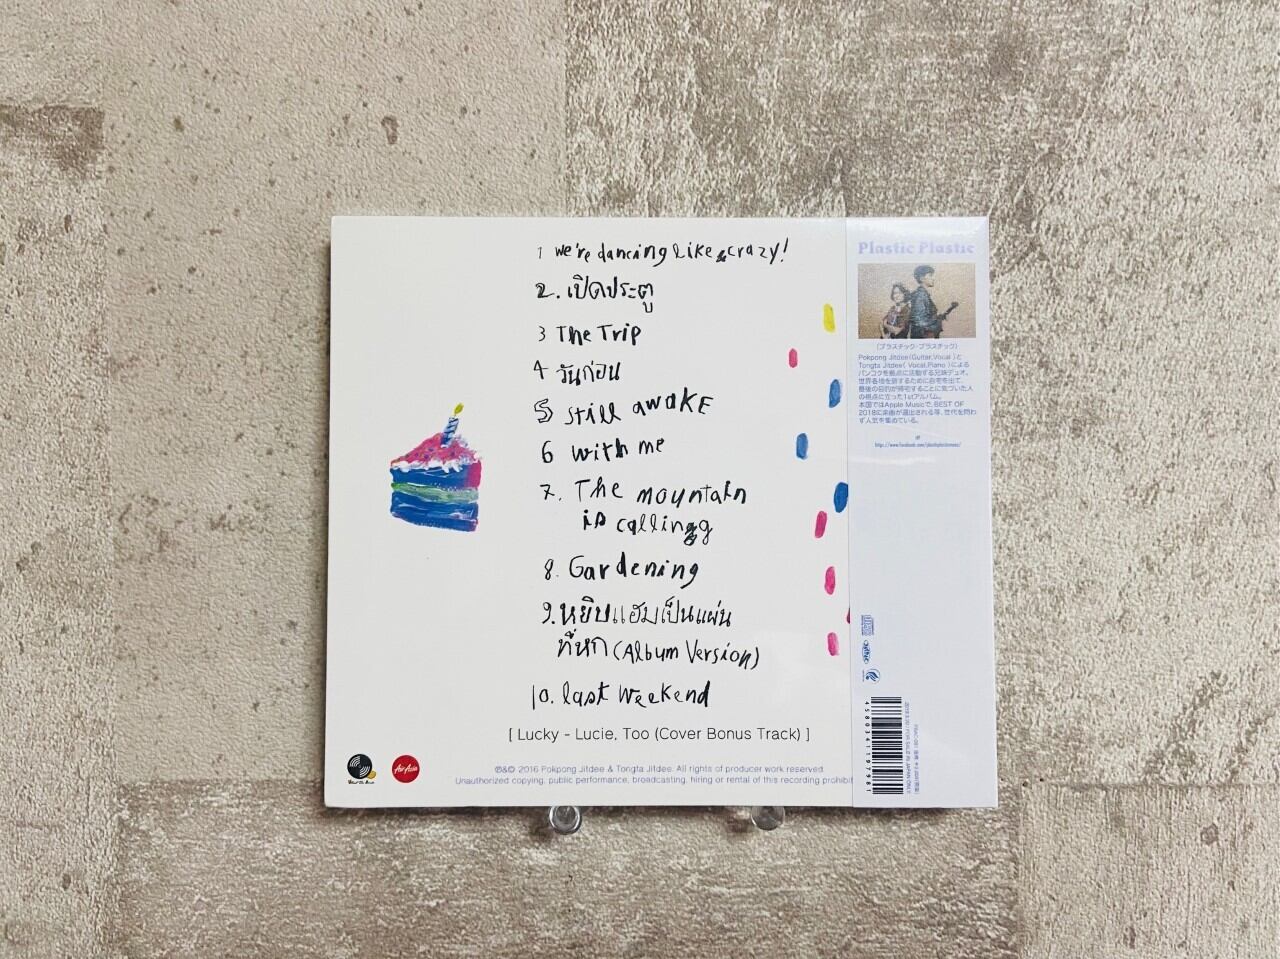 1 we're dancing like crazy!
2. เปิดประตู
3 The Trip
4 วันก่อน
5 still awake
6 with me
7. The mountain
is calling
8. Gardening
9. หยิบแฮมเป็นแผ่น
ที่หก (Album Version)
10. last weekend
[ Lucky - Lucie, Too (Cover Bonus Track) ]
AirAsia
℗&© 2016 Pokpong Jitdee & Tongta Jitdee. All rights of producer work reserved.
Unauthorized copying, public performance, broadcasting, hiring or rental of this recording prohibit
Plastic Plastic
(プラスチック・プラスチック)
Pokpong Jitdee(Guitar,Vocal )と
Tongta Jitdee( Vocal,Piano )による
バンコクを拠点に活動する兄妹デュオ。
世界各地を旅するために自宅を出て、
最後の目的が帰宅することに気づいた人
の視点に立った1stアルバム。
本国ではApple Musicで、BEST OF
2018に楽曲が選出される等、世代を問わ
ず人気を集めている。
4580341197981